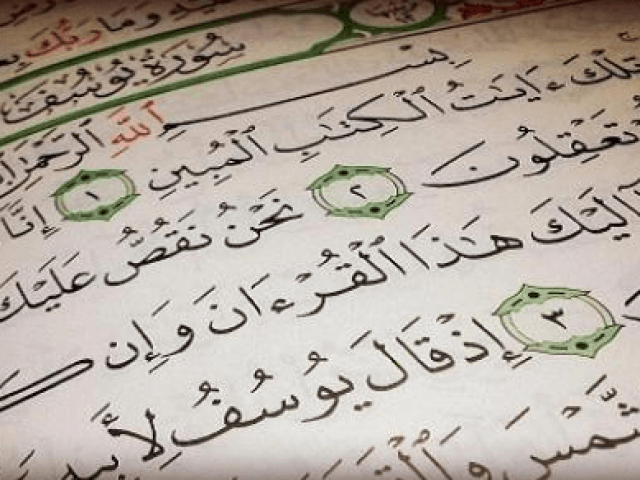 وَمَا رَبُّكَ
سُورَةُ يُوسُفَ
بِسْمِ ٱللَّهِ ٱلرَّحْمَٰنِ
تِلْكَ ءَايَٰتُ ٱلْكِتَٰبِ ٱلْمُبِينِ ١ إِنَّا
تَعْقِلُونَ ٢ نَحْنُ نَقُصُّ عَلَيْكَ
إِلَيْكَ هَٰذَا ٱلْقُرْءَانَ وَإِن
٣ إِذْ قَالَ يُوسُفُ لِأَبِيهِ